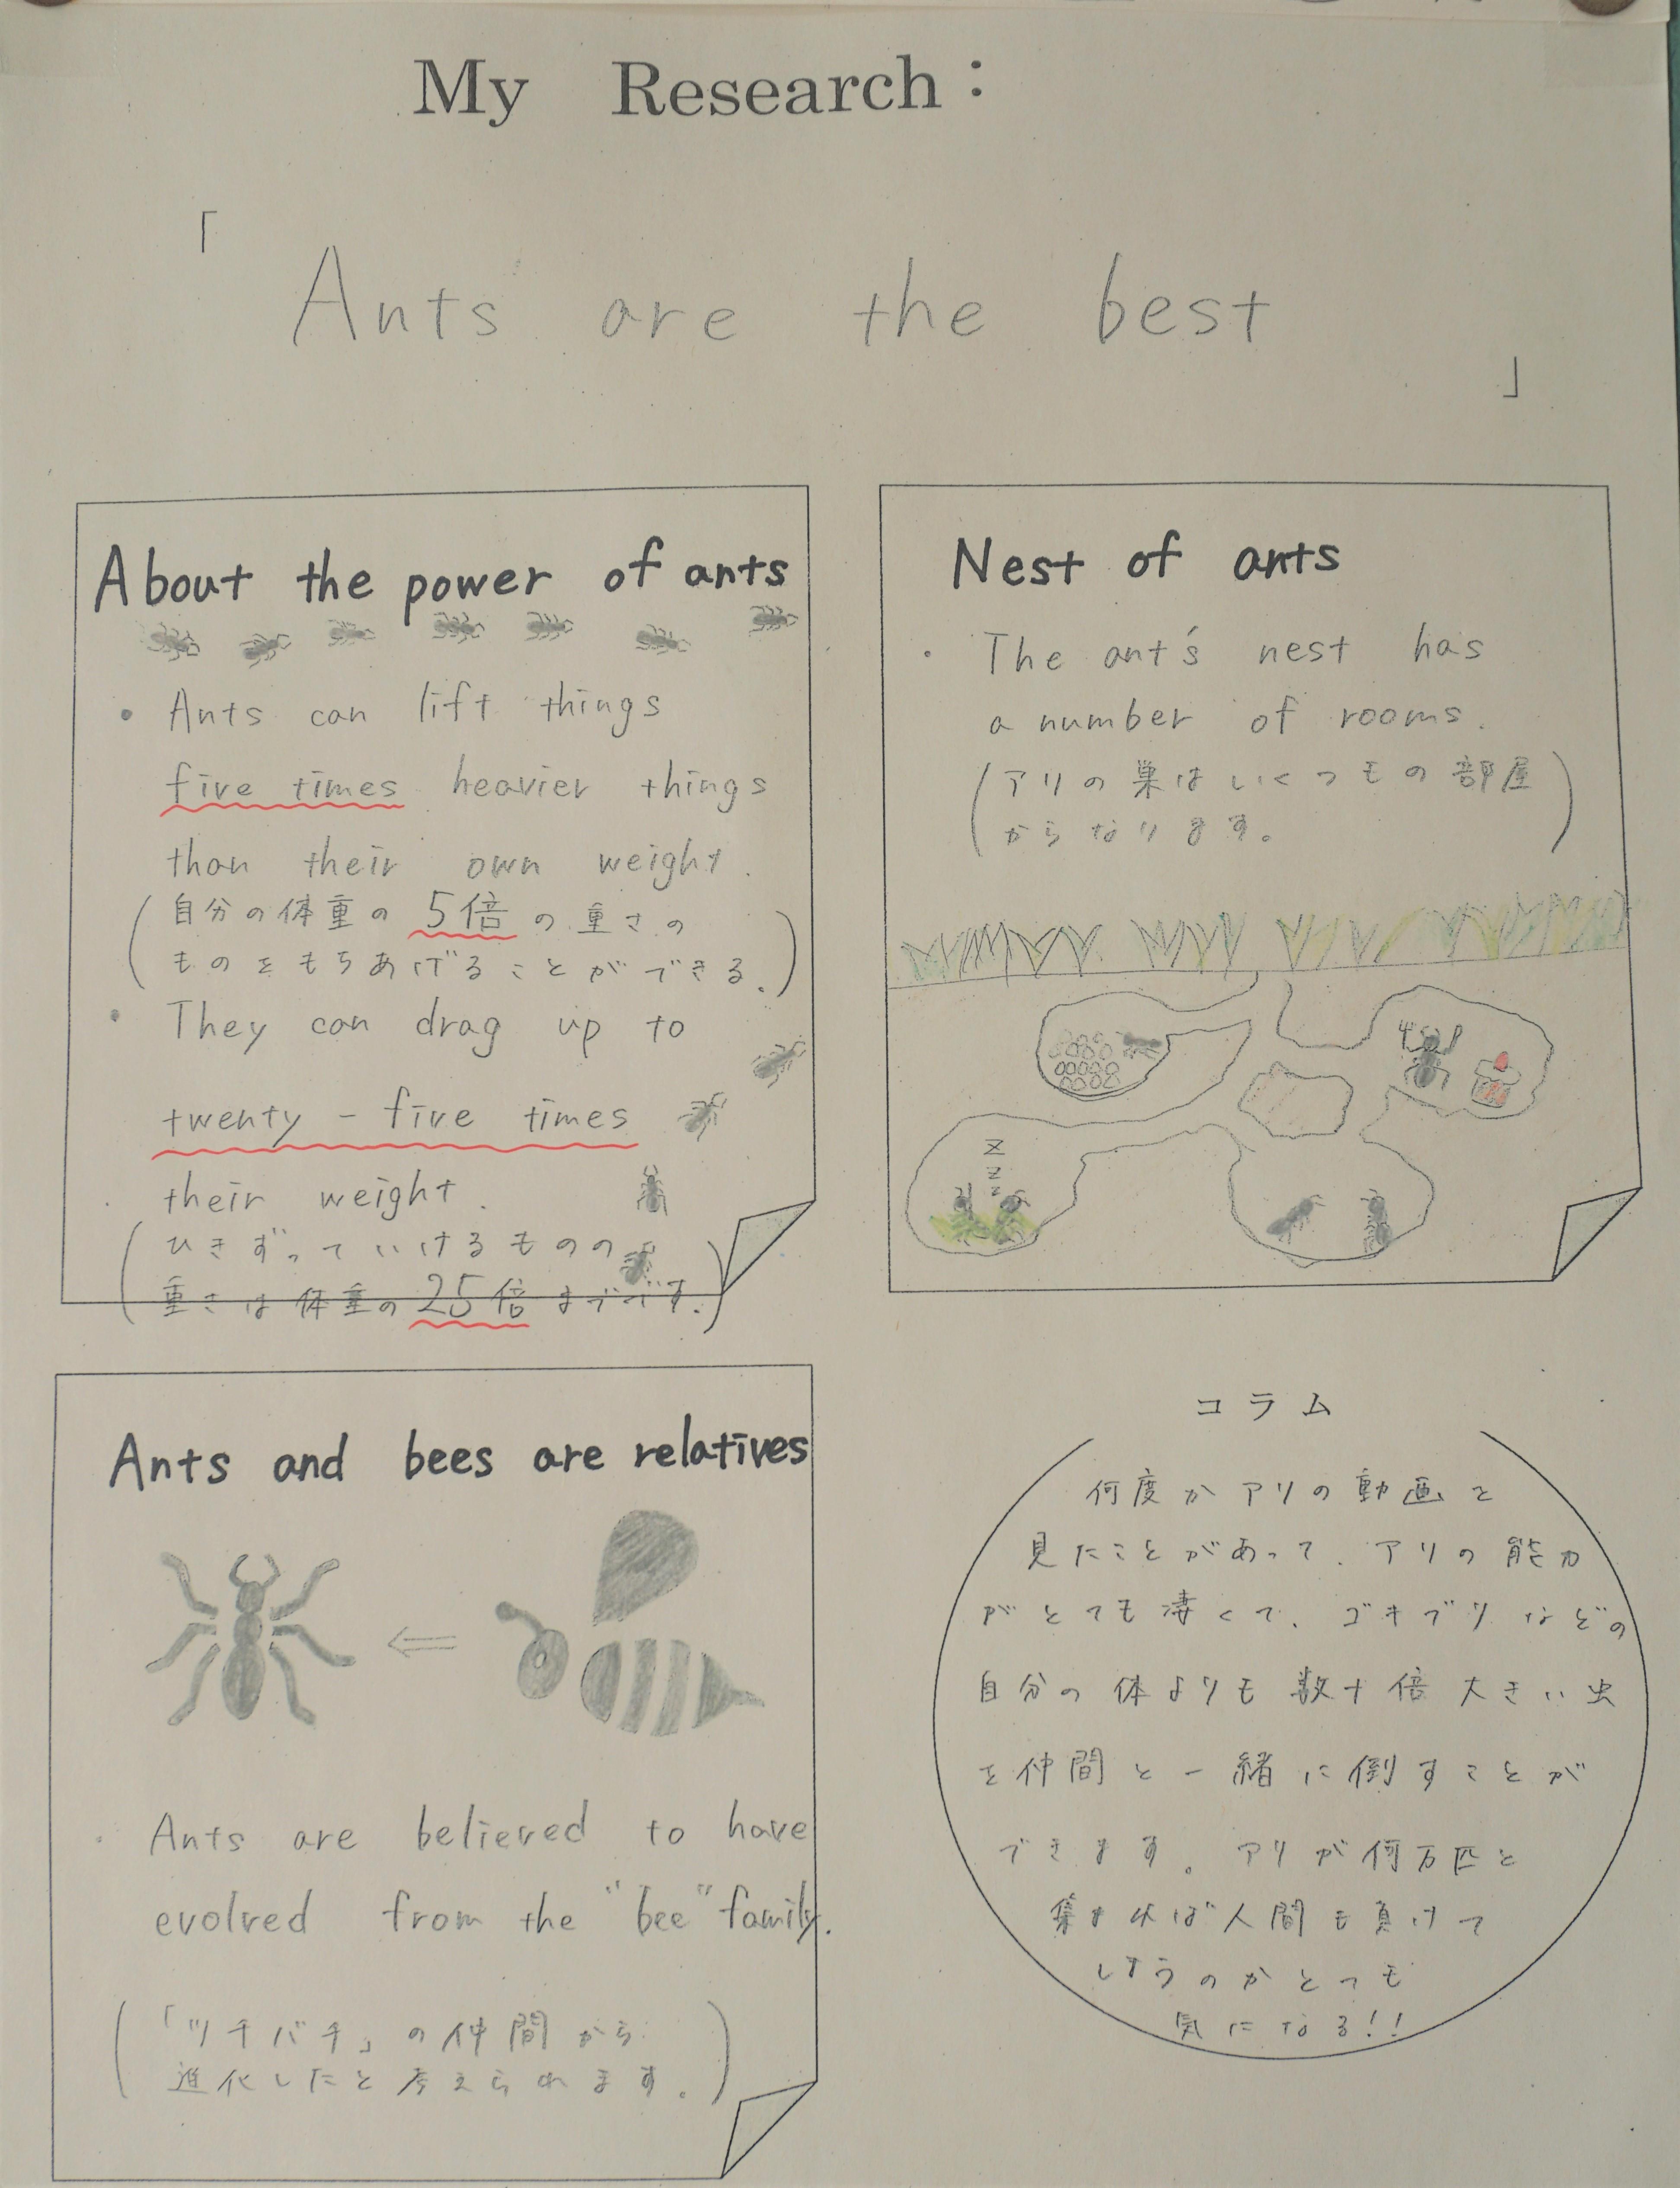 My Research：
「
Ants are the best
」
About the power of ants
・Ants can lift things
five times heavier things
than their own weight.
(自分の体重の5倍の重さの
ものをもちあげることができる.)
・They can drag up to
twenty-five times
their weight.
(ひきずっていけるものの
重さは体重の25倍までです.)
Nest of ants
・The ant's nest has
a number of rooms.
(アリの巣はいくつもの部屋
からなります。)
z
z
z
Ants and bees are relatives
・Ants are believed to have
evolved from the "bee" family.
(「ツチバチ」の仲間から
進化したと考えられます.)
コラム
何度かアリの動画を
見たことがあって、アリの能力
がとても凄くて、ゴキブリなどの
自分の体よりも数十倍大きい虫
を仲間と一緒に倒すことが
できます。アリが何万匹と
集まれば人間も負けて
しまうのかとっても
気になる!!